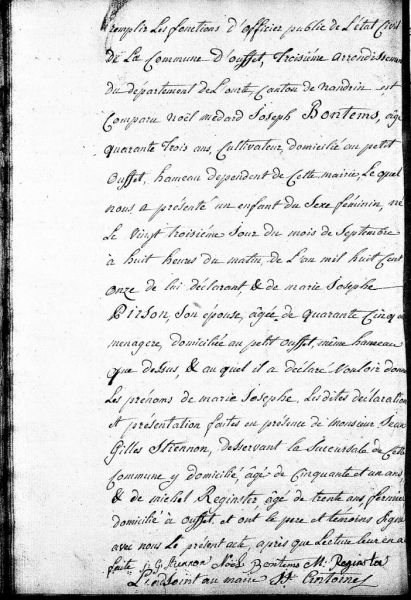 remplir Les fonctions d'officier public de L'état Civil
de La Commune D'ouffet, Troisiéme arrondissem
du département De L'ourte, Canton de nandrin est
Comparu noël médard Joseph Bontems, âgé
quarante Trois ans, Cultivateur, domicilié au petit
ouffet, hameau dépendent de Cette mairie, Le quel
nous a présenté un enfant du Sexe féminin, né
Le Vingt Troisiéme Jour du mois de Septembre
à huit heures du matin, de L'an mil huit Cent
onze de lui déclarant, & de marie Josephe
Pirson, son épouse, âgée de quarante Cinq
menagere, domiciliée au petit ouffet, même hameau
que dessus, & au quel il a déclaré Vouloir donn
Les prénoms de marie Josephe, Les dites déclaration
et présentation faites en présence de monsieur Jean
Gilles Strennon, desservant la Succursale de Cette
Commune y domicilié, âgé de Cinquante et un ans
& de michel Reginster, âgé de trente ans, fermier
domicilié à ouffet, et ont Le pere et témoins Signé
avec nous Le présent acte, après que Lecture leur en a
faite J. G. Strennon Noël Bontems M. Reginster
L'adjoint au maire